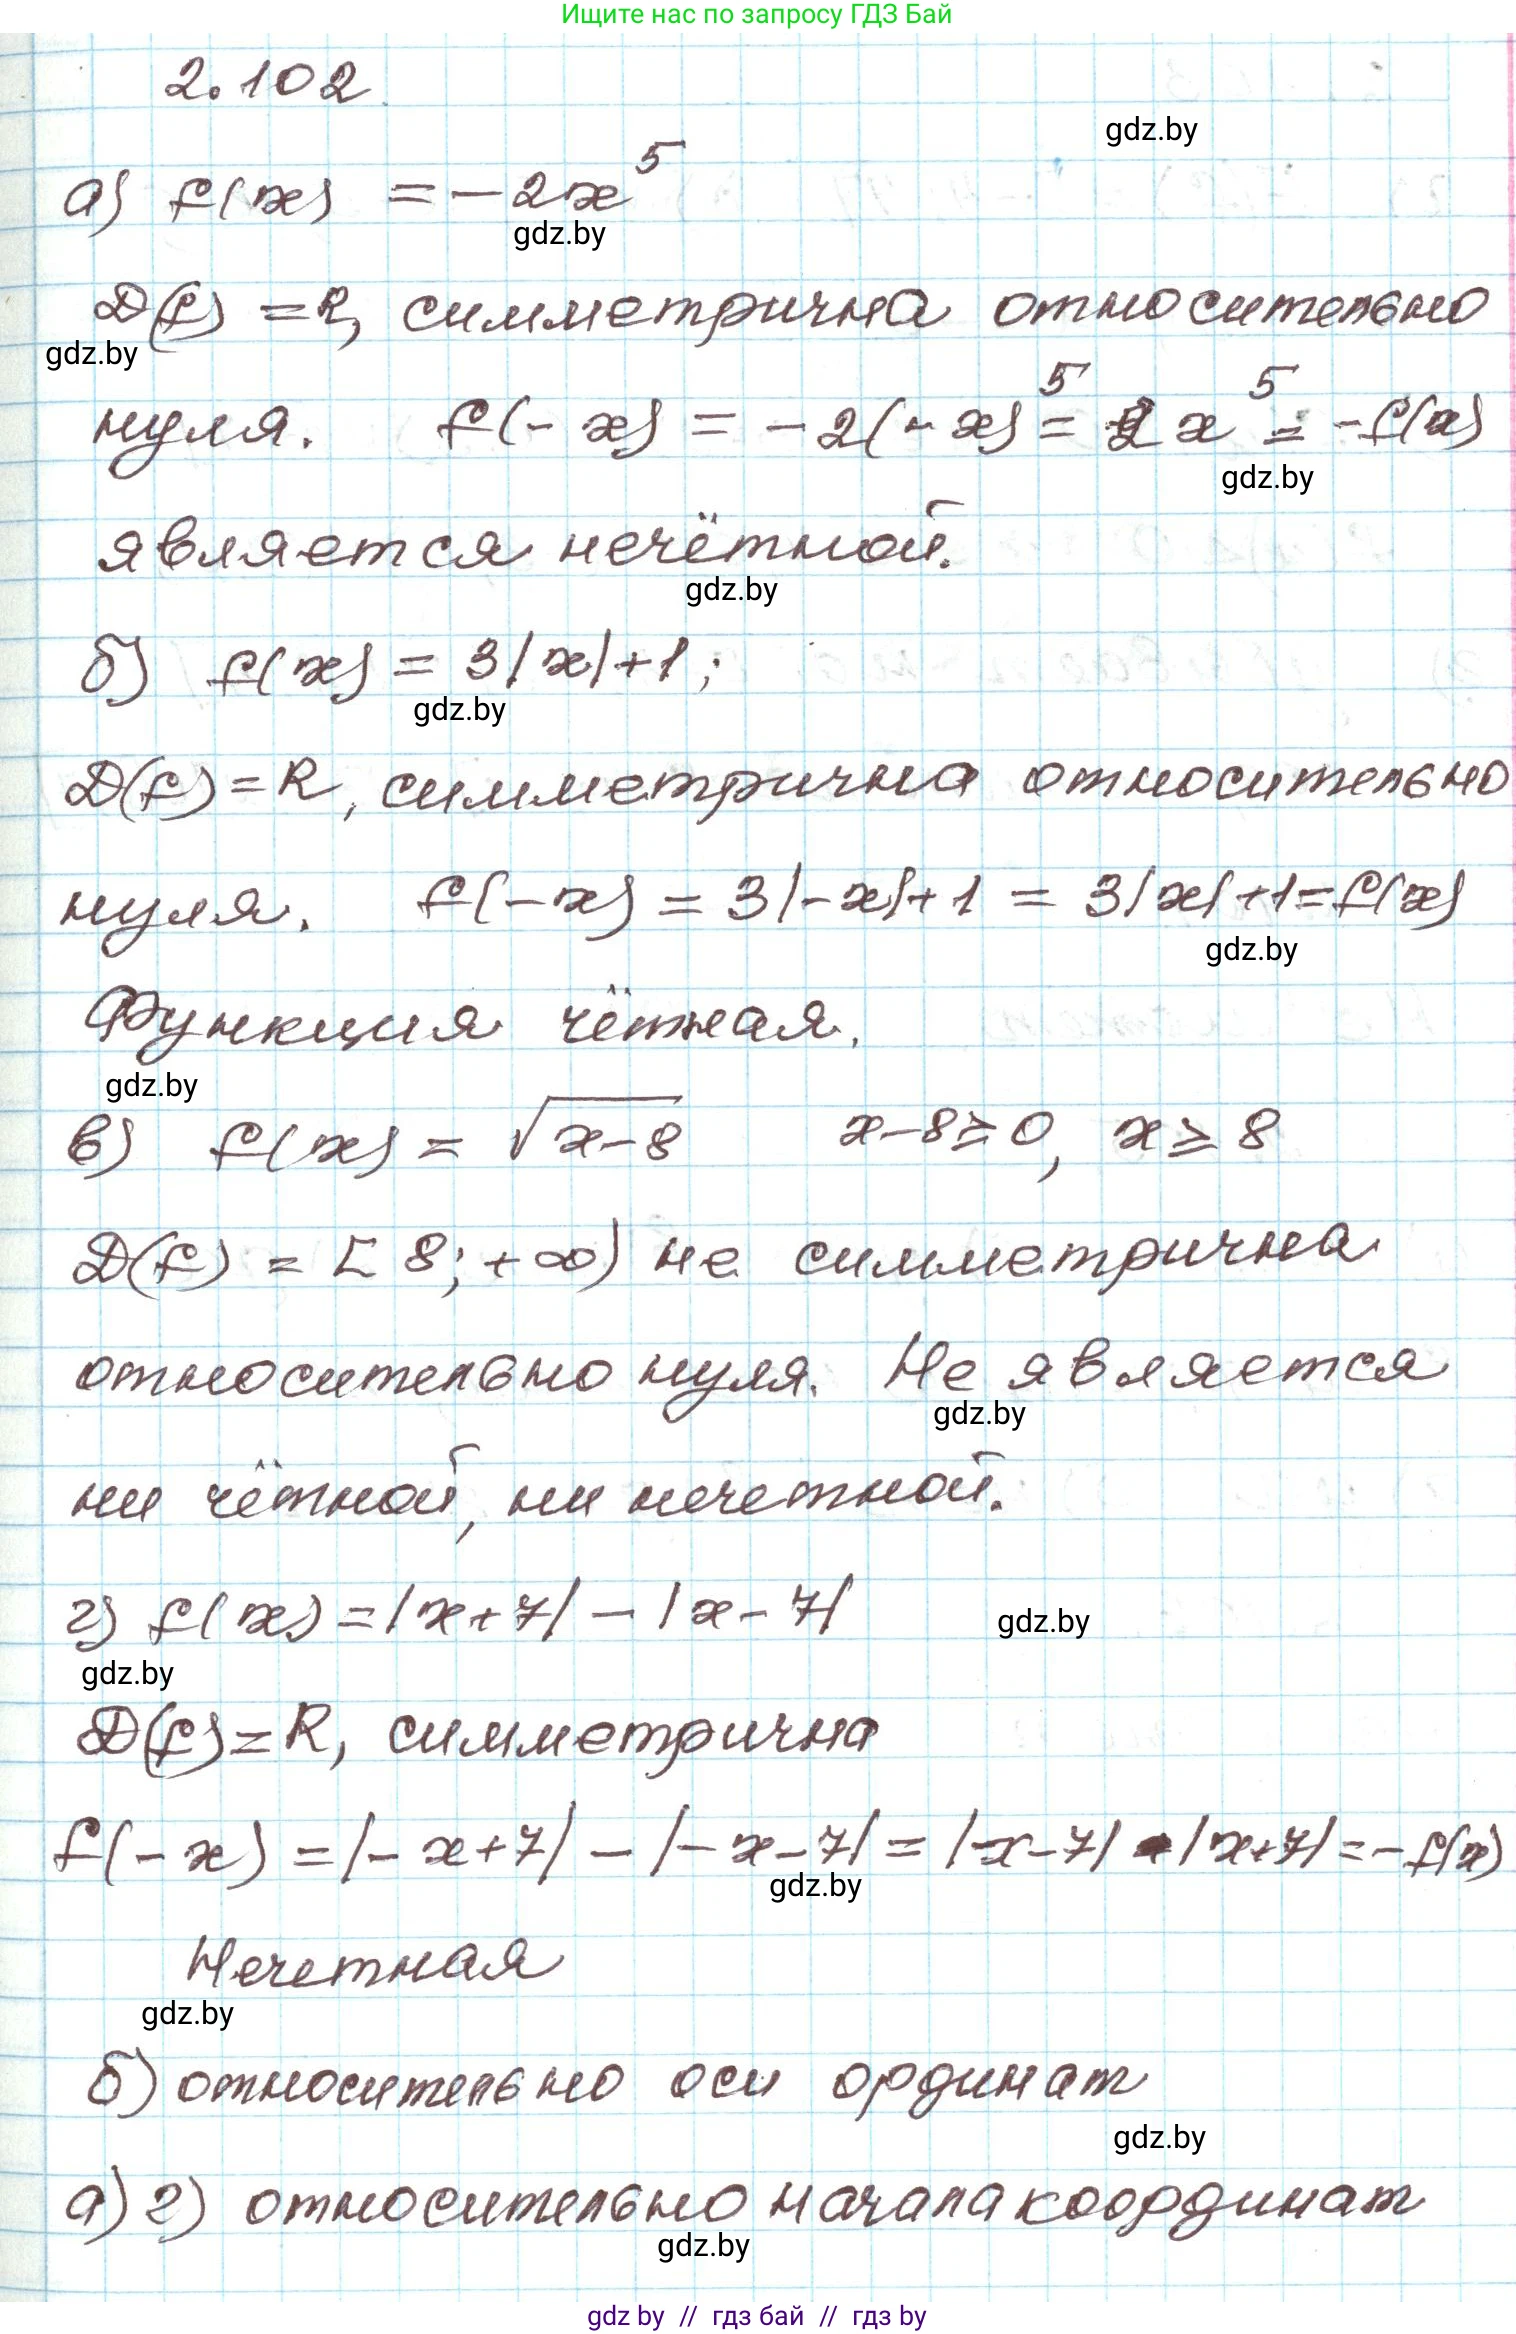 Ищите нас по запросу ГДЗ Бай
2.102
gdz.by
а) f(x) = -2x⁵
gdz.by
D(f) = R, симметрична относительно
gdz.by
нуля. f(-x) = -2(-x)⁵ = 2x⁵ = -f(x)
gdz.by
является нечётной.
gdz.by
б) f(x) = 3|x|+1;
gdz.by
D(f) = R, симметрична относительно
нуля. f(-x) = 3|-x|+1 = 3|x|+1 = f(x)
gdz.by
Функция чётная.
gdz.by
в) f(x) = √(x-8) x-8≥0, x≥8
D(f) = [8; +∞) не симметрична
относительно нуля. Не является
gdz.by
ни чётной, ни нечетной.
г) f(x) = |x+7| - |x-7|
gdz.by
gdz.by
D(f) = R, симметрична
f(-x) = |-x+7| - |-x-7| = |x-7| - |x+7| = -f(x)
gdz.by
Нечетная
gdz.by
б) относительно оси ординат
gdz.by
а) г) относительно начала координат
gdz.by
gdz by // гдз бай // гдз by